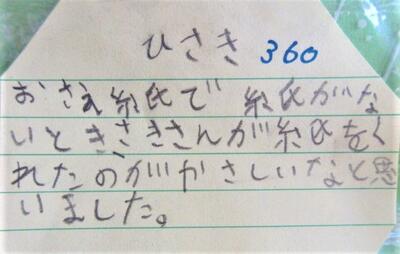 ひさき 360
おさえ紙で 紙がな
いときさきさんが紙をく
れたのがやさしいなと思
いました。